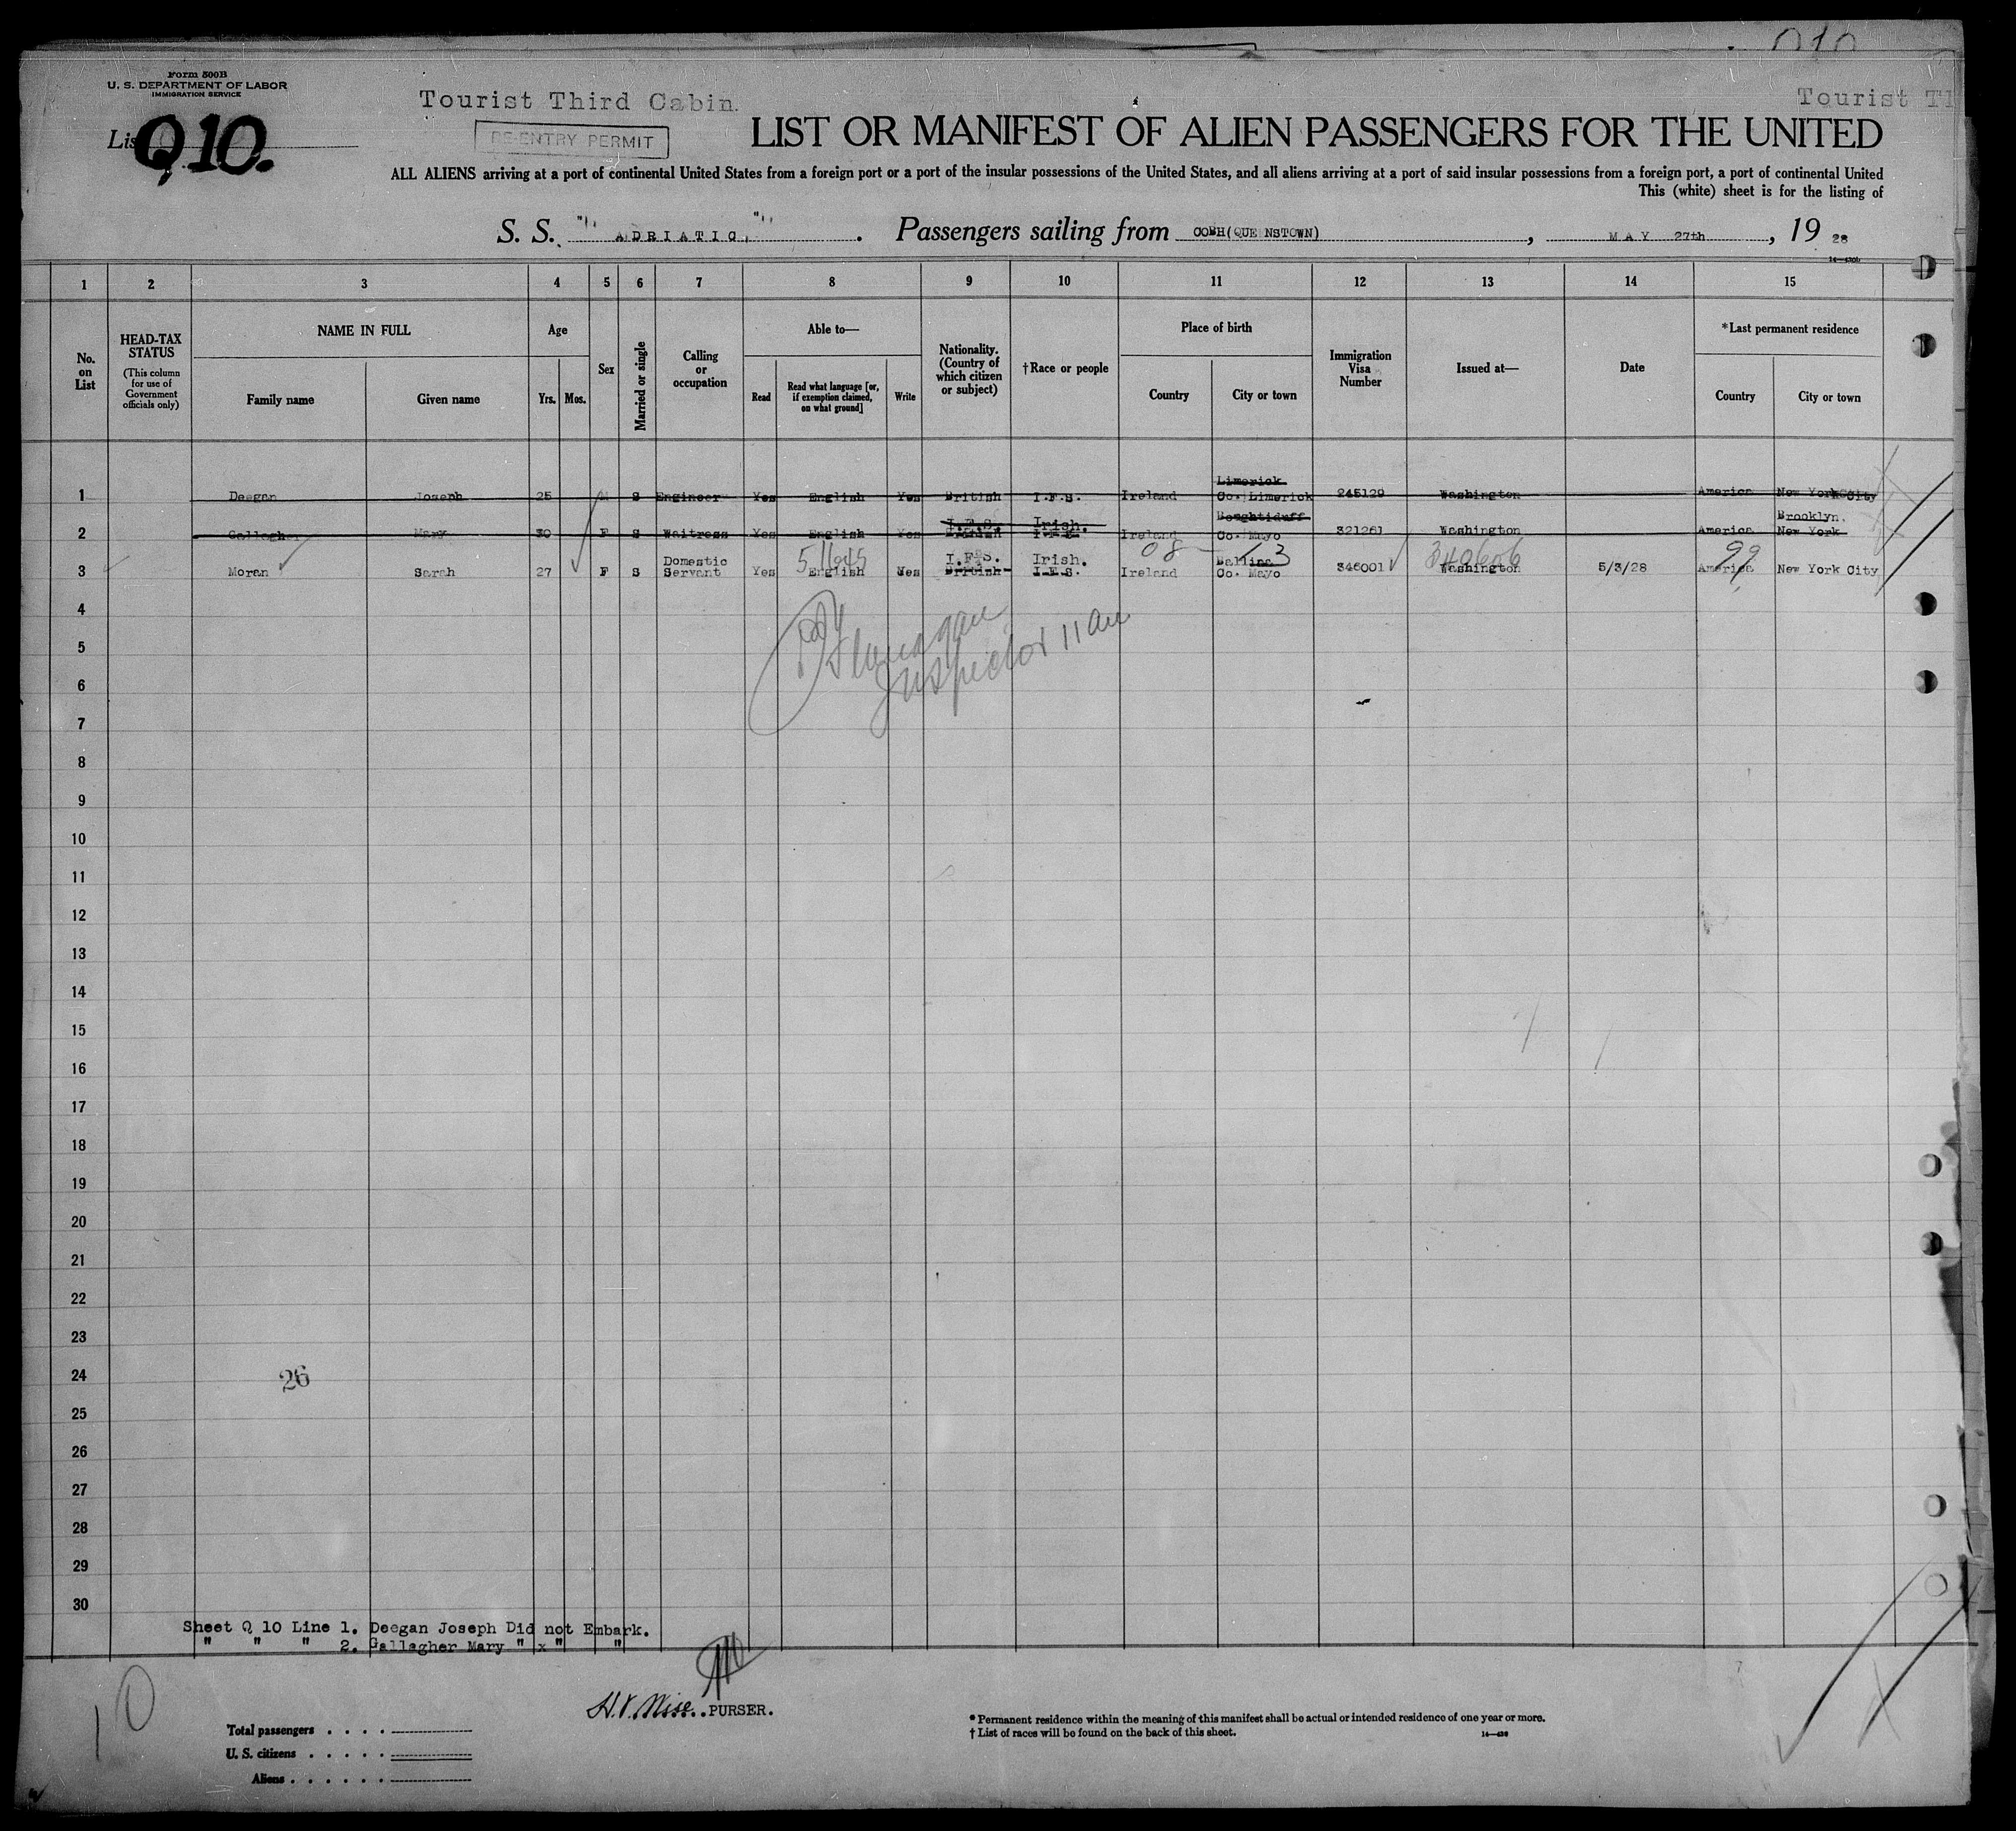 Q10
Form 500B
U. S. DEPARTMENT OF LABOR
IMMIGRATION SERVICE
Tourist Third Cabin.
Tourist T
List Q10.
RE-ENTRY PERMIT
LIST OR MANIFEST OF ALIEN PASSENGERS FOR THE UNITED
ALL ALIENS arriving at a port of continental United States from a foreign port or a port of the insular possessions of the United States, and all aliens arriving at a port of said insular possessions from a foreign port, a port of continental United
This (white) sheet is for the listing of
S. S. "ADRIATIC," . Passengers sailing from COBH(QUEENSTOWN) , MAY 27th , 19 28
1 2 3 4 5 6 7 8 9 10 11 12 13 14 15
No. on List
HEAD-TAX STATUS
(This column for use of Government officials only)
NAME IN FULL
Family name Given name
Age
Yrs. Mos.
Sex
Married or single
Calling or occupation
Able to—
Read Read what language [or, if exemption claimed, on what ground] Write
Nationality. (Country of which citizen or subject)
†Race or people
Place of birth
Country City or town
Immigration Visa Number
Issued at—
Date
*Last permanent residence
Country City or town
Limerick
1 Deegan Joseph 25 M S Engineer Yes English Yes British I.F.S. Ireland Co. Limerick 245129 Washington America New York City
I.F.S. Irish. Brooklyn,
2 Gallagher Mary 30 F S Waitress Yes English Yes British I.F.S. Ireland Co. Mayo 321261 Washington America New York
Domestic I.F.S. Irish. Ballina
3 Moran Sarah 27 F S Servant Yes English Yes British I.F.S. Ireland Co. Mayo 346001 Washington 5/3/28 America New York City
99
4
5
Inspector
6
7
8
9
10
11
12
13
14
15
16
17
18
19
20
21
22
23
24 26
25
26
27
28
29
30
Sheet Q 10 Line 1. Deegan Joseph Did not Embark.
" " " 2. Gallagher Mary " x " "
10
H.V. Wise..PURSER.
Total passengers . . . .
U. S. citizens . . . . .
Aliens . . . . . .
* Permanent residence within the meaning of this manifest shall be actual or intended residence of one year or more.
† List of races will be found on the back of this sheet.